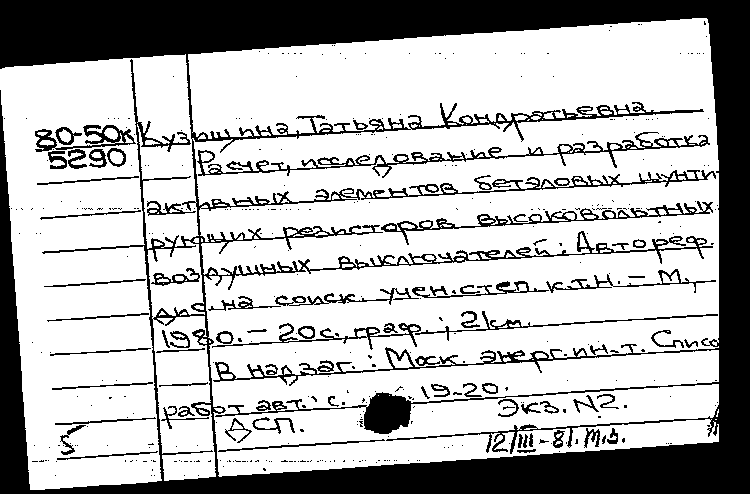 80-50к Кузишина, Татьяна Кондратьевна.
5290 Расчет, исследование и разработка
активных элементов бетэловых шунти-
рующих резисторов высоковольтных
воздушных выключателей: Автореф.
дис. на соиск. учен. степ. к.т.н. – М.,
1980. – 20с., граф. ; 21км.
В надзаг. : Моск. энерг. ин-т. Списо
работ авт.: с. 19-20.
5 ДСП. Экз. N2.
12/III-81.